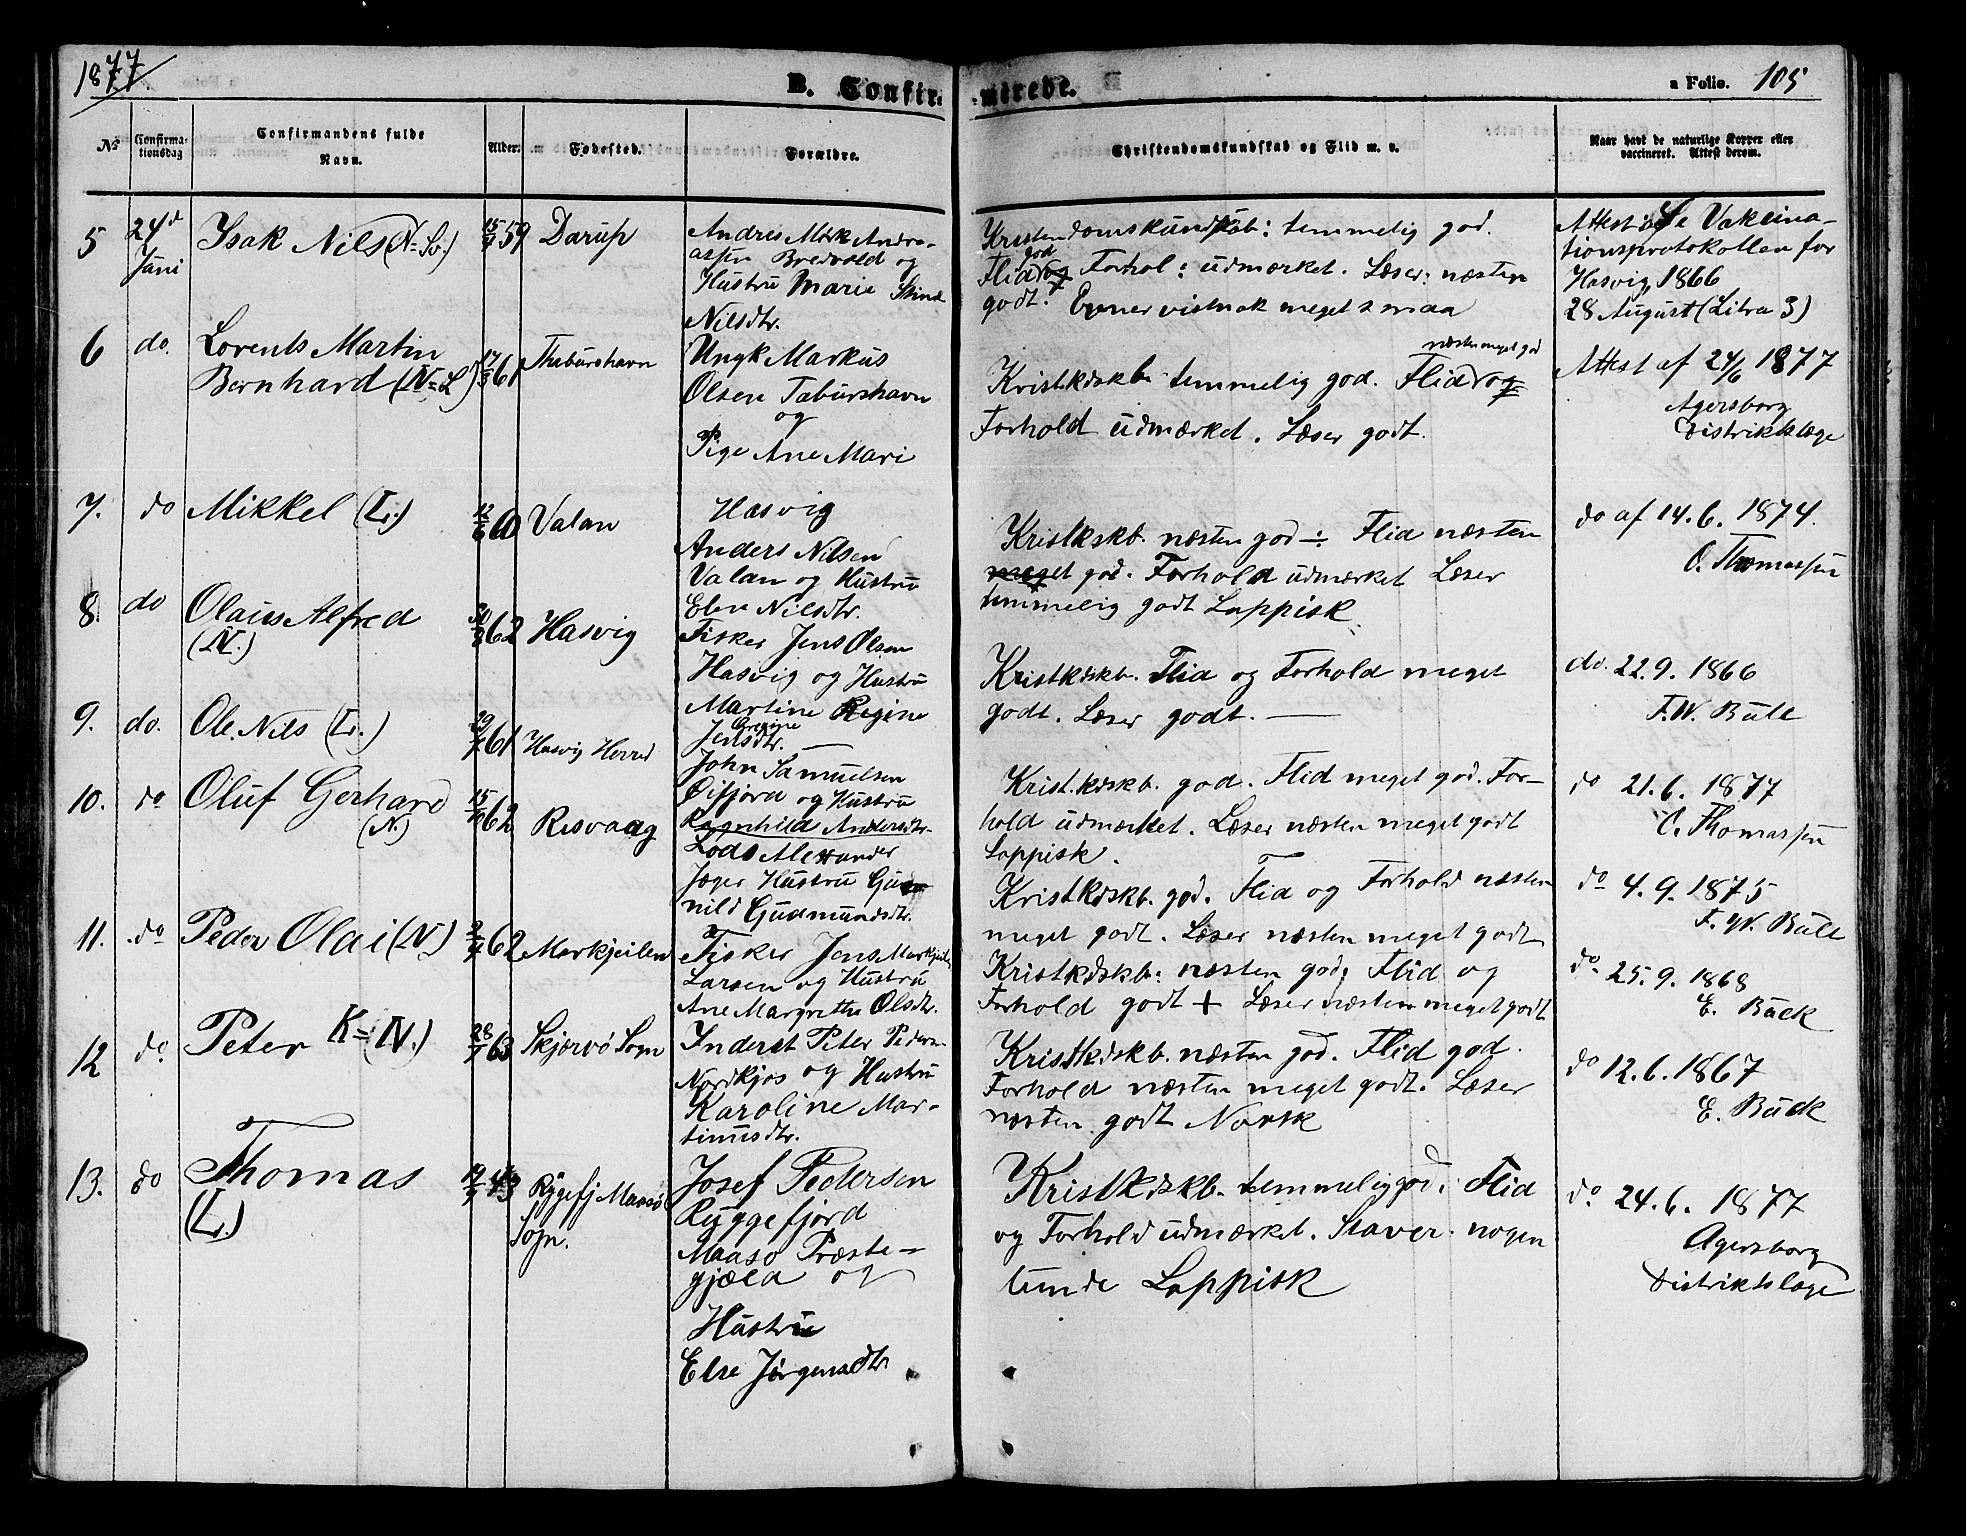 1877.
B. Confir-
-merede.
a Folio. 105
No
Confirma-
tionsdag
Confirmandens fulde
Navn.
Alder.
Fødested.
Forældre.
Christendomskundskab og Flid m. v.
Naar havt de naturlige Kopper eller
vaccineret. Attest derom.
5
24d
Juni
Isak Nils (N=
59
Darup
Andres Mark Andre-
assen Bredvold og
Hustru Marie Stina
Nilsdtr.
Kristendomskundskab: temmelig god.
Flid god og Forhol: udmærket. Læser: næsten
godt. Evner vistnok meget smaa
Attest Vakcina-
tionsprotokollen for
Hasvig 1866
28 August (Litra 3)
6
do.
Lorents Martin
Bernhard (N=L)
17/3 61
Thaburshavn
Ungk Markus
Olsen Taburshavn
og
Pige Ane Mari
næsten meget god
Kristkdskb. temmelig god. Flid og
Forhold udmærket. Læser godt.
Attest af 24/6 1877
Agersborg
Distriktslæge
7.
do
Mikkel (L.)
12/6 60
Valan
Hasvig
Anders Nilsen
Valan og Hustru
Elen Nilsdtr.
Kristkskb. næsten god ÷ Flid næsten
meget god. Forhold udmærket Læser
temmelig godt Lappisk
do af 14.6. 1874.
O. Thomassen
8.
do
Olaus Alfred
(N.)
62
Hasvig
Fisker Jens Olsen
Hasvig og Hustru
Martine Regine
Jensdtr.
Kristkdskb. Flid og Forhold meget
godt. Læser godt. —
do. 22.9. 1866
F.W. Bull
9.
do.
Ole Nils (L.)
61
Hasvig Herred
John Samuelsen
Øifjord og Hustru
Ragnhild Andersdtr.
Krist.kdskb. god. Flid meget god. For-
hold udmærket. Læser næsten meget godt
Lappisk.
do 21.6. 1877
O. Thomassen
10.
do
Oluf Gerhard
(N.)
62
Risvaag
Lods Alexander
Jæger Hustru Gu
nild Gudmundsdtr.
Kristkdskb. god. Flid og Forhold næsten
meget godt. Læser næsten meget godt
do 4.9. 1875
F.W. Bull
11.
do
Peder Olai (N.)
62
Markjeilen
Fisker Jens Markjeilen
Larsen og Hustru
Ane Margrethe Olsdtr.
Kristkdskb: næsten god. Flid og
Forhold godt + Læser næsten meget godt
do. 25.9. 1868
E. Buck
12
do
Peter K=(N.)
28/7 63
Skjærvø Sogn
Inderst Peter Peders.
Nordkjos og Hustru
Karoline Mar-
tinusdtr.
Kristkdskb. næsten god. Flid god.
Forhold næsten meget godt. Læser
næsten godt Norsk
do 12.6. 1867
E. Buck
13.
do
Thomas
(L.)
43
Ryggefj Maasø
Sogn.
Josef Pedersen
Ryggefjord
Maasø Præste-
gjæld og
Hustru
Else Jørgensdtr.
Kristkdskb. temmelig god. Flid
og Forhold udmærket. Staver nogen
lunde Lappisk
do 24.6. 1877
Agersborg
Distriktslæge